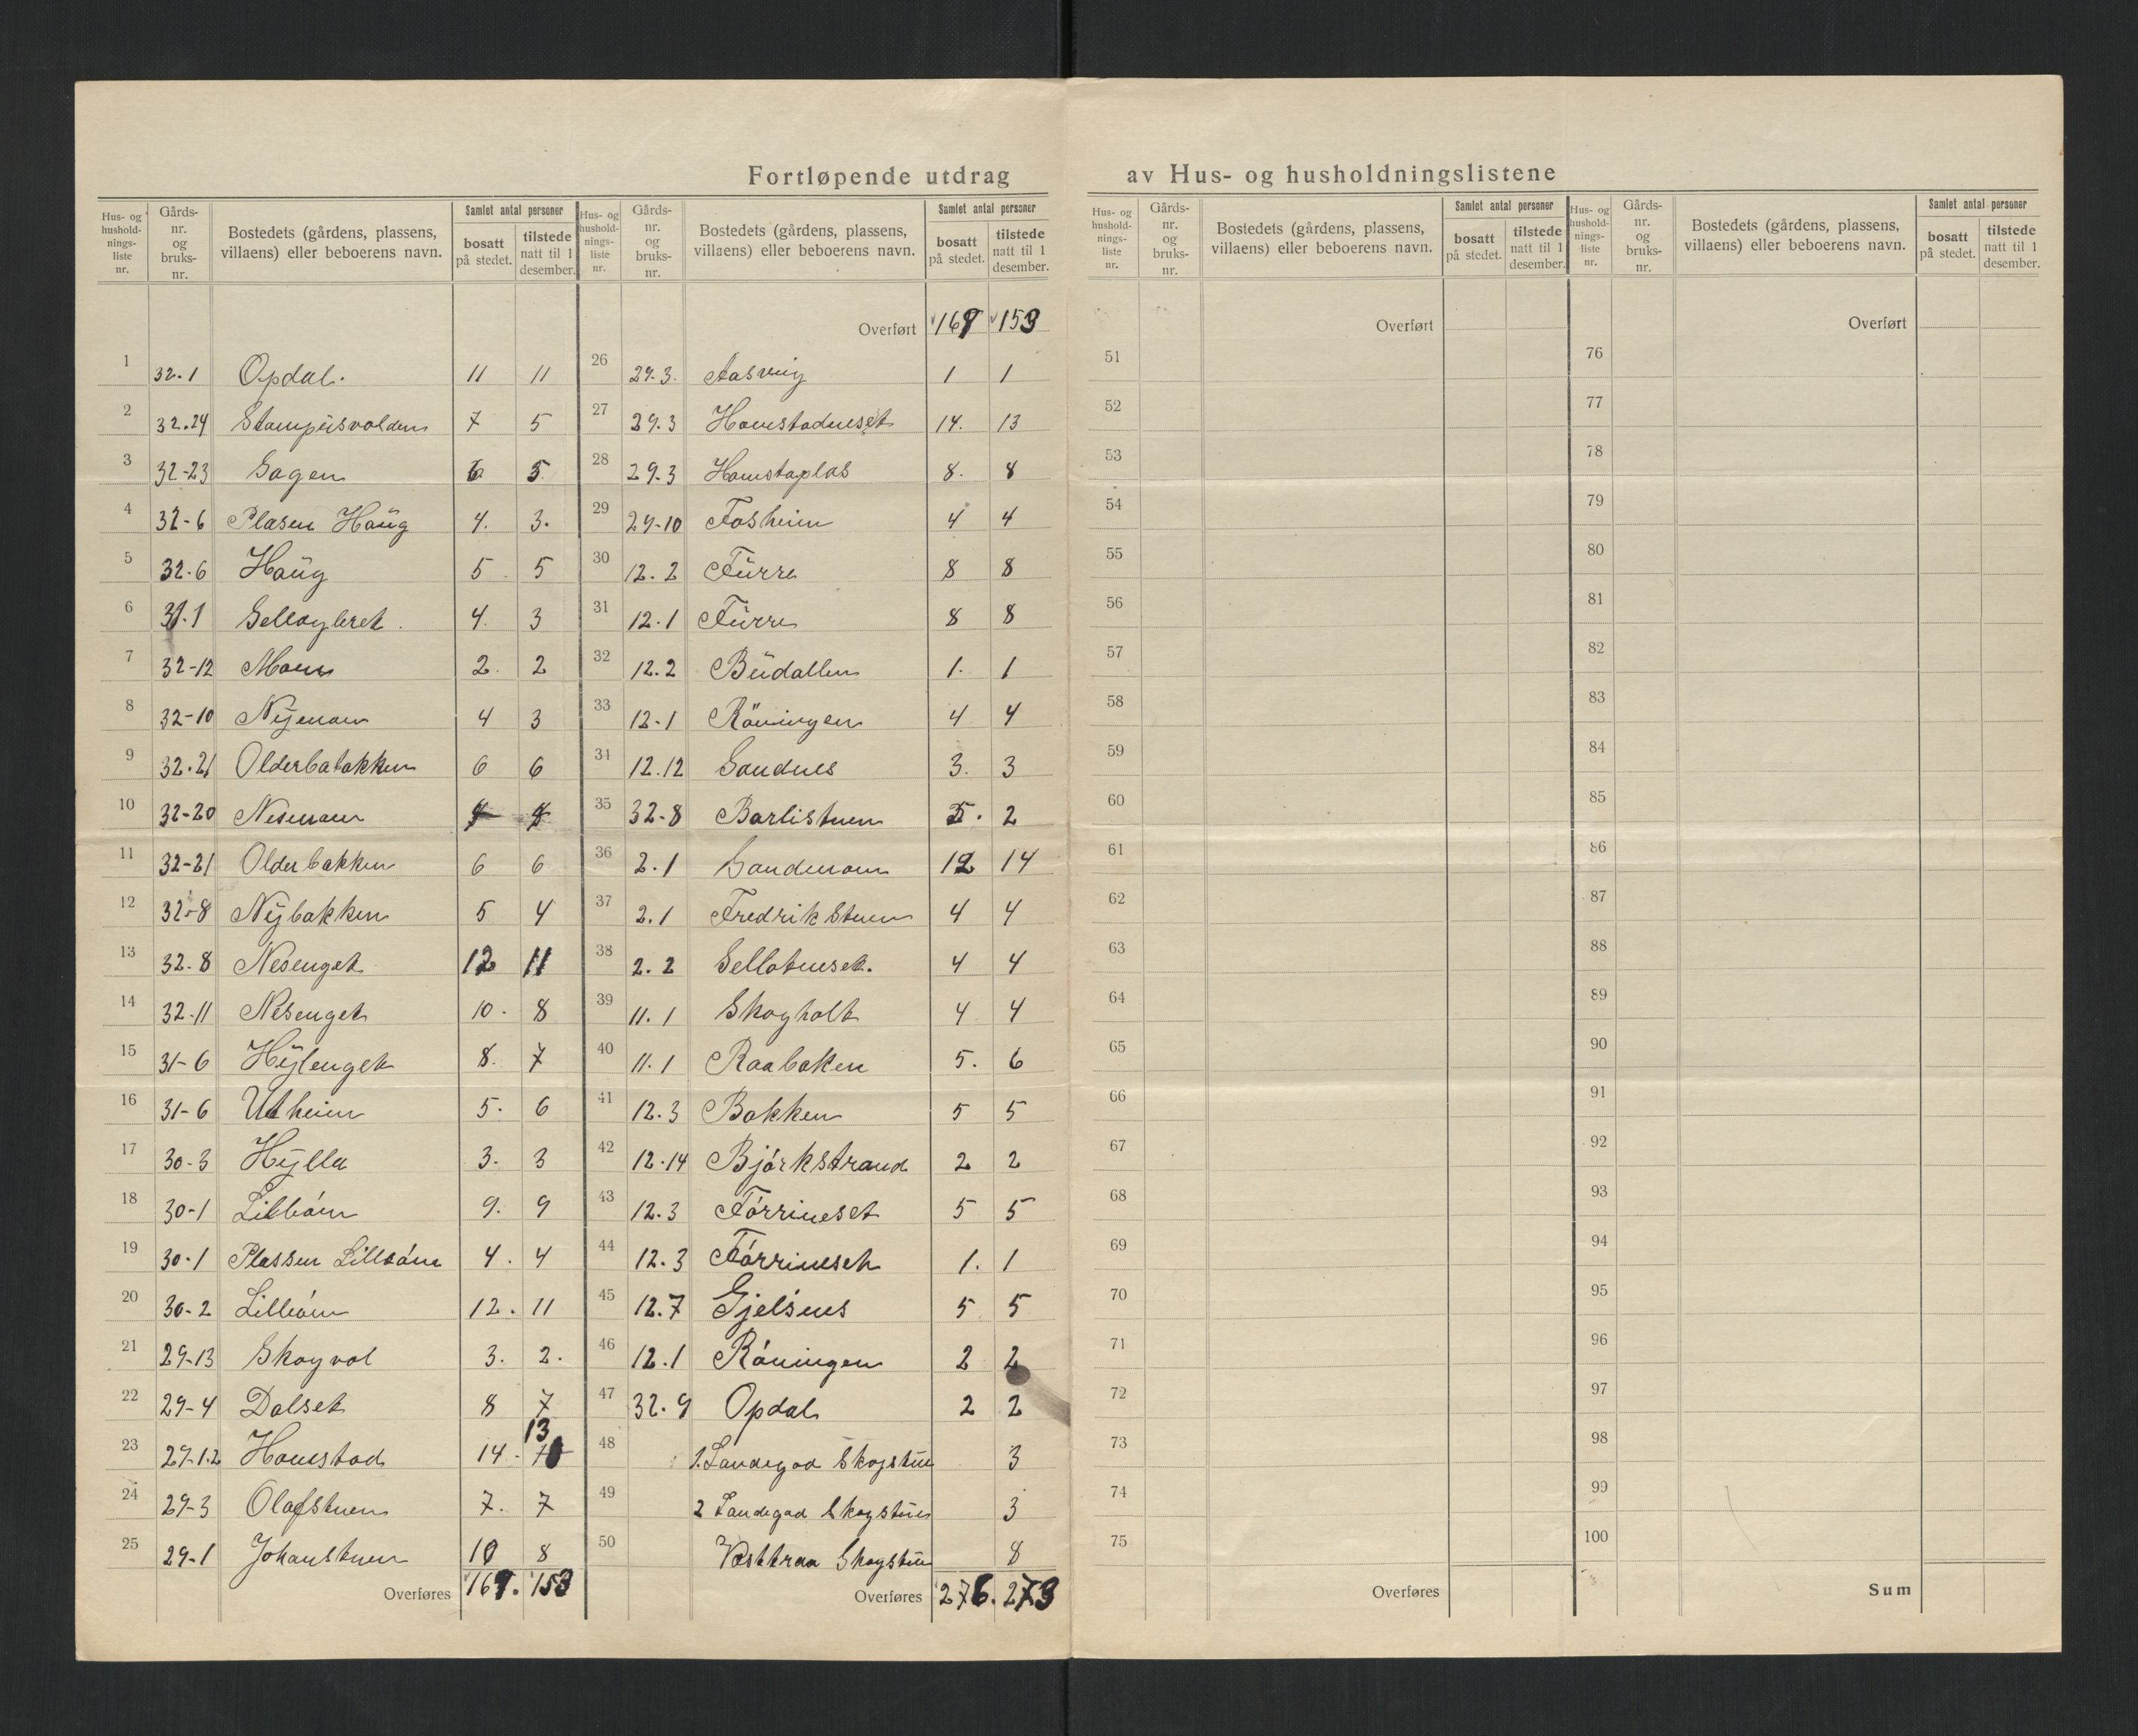 Fortløpende utdrag av Hus- og husholdningslistene
Hus- og husholdningsliste nr. | Gårds-nr. og bruks-nr. | Bostedets (gårdens, plassens, villaens) eller beboerens navn. | Samlet antal personer bosatt på stedet. | tilstede natt til 1 desember.
1 32.1 Opdal. 11 11
2 32.24 7 5
3 32-23 Hagen 6 5
4 32-6 Plasen Haug 4. 3.
5 32.6 Haug 5 5
6 31.1 4. 3
7 32-12 Moen 2. 2
8 32-10 4 3
9 32.21 Olderbabakken 6 6
10 32-20
11 32-21 Olderbakken 6 6
12 32-8 Nybakken 5 4
13 32.8 Nesenget 12 11
14 32-11 Nesenget 10. 8
15 31-6 Hyllenget 8. 7
16 31-6 Utheim 5. 6
17 30-3 Hylla 3. 3
18 30-1 9. 9
19 30-1 Plassen 4. 4
20 30-2 12. 11
21 29-13 Skogvol 3. 2.
22 29-4 Dalset 8 7
23 Hamstad 14. 13
24 29-3 Olafstuen 7. 7
25 29-1 Johanstuen 10 8
Overføres 153
Hus- og husholdningsliste nr. | Gårds-nr. og bruks-nr. | Bostedets (gårdens, plassens, villaens) eller beboerens navn. | Samlet antal personer bosatt på stedet. | tilstede natt til 1 desember.
Overført 153
26 29.3. Aasveig 1 1
27 29.3 14. 13
28 29.3 Hamstaplas 8. 8
29 29-10 Fosheim 4 4
30 12.2 Fürre 8 8
31 12.1 Fürre 8 8
32 12.2 Büdallen 1. 1
33 12-1 Röningen 4 4
34 12.12 Sandnes 3. 3
35 32-8 Barlistuen 5. 2
36 2.1 Sandmoen 12 14
37 2.1 Fredrikstuen 4 4
38 2.2 4 4
39 11.1 Skogholt 4 4
40 11.1 Raabaken 5. 6
41 12.3 Bakken 5 5
42 12.14 Björkstrand 2 2
43 12.3 Förrineset 5 5
44 12.3 Förrineset 1. 1
45 12.7 Gjelsnes 5 5
46 12.1 Röningen 2 2
47 32.9 Opdal 2 2
48 1. Landegod Skogstue 3
49 2 Landegod Skogstue 3
50 Vesttraa Skogstue 8
Overføres 276. 273
Hus- og husholdningsliste nr. | Gårds-nr. og bruks-nr. | Bostedets (gårdens, plassens, villaens) eller beboerens navn. | Samlet antal personer bosatt på stedet. | tilstede natt til 1 desember.
Overført
51
52
53
54
55
56
57
58
59
60
61
62
63
64
65
66
67
68
69
70
71
72
73
74
75
Overføres
Hus- og husholdningsliste nr. | Gårds-nr. og bruks-nr. | Bostedets (gårdens, plassens, villaens) eller beboerens navn. | Samlet antal personer bosatt på stedet. | tilstede natt til 1 desember.
Overført
76
77
78
79
80
81
82
83
84
85
86
87
88
89
90
91
92
93
94
95
96
97
98
99
100
Sum